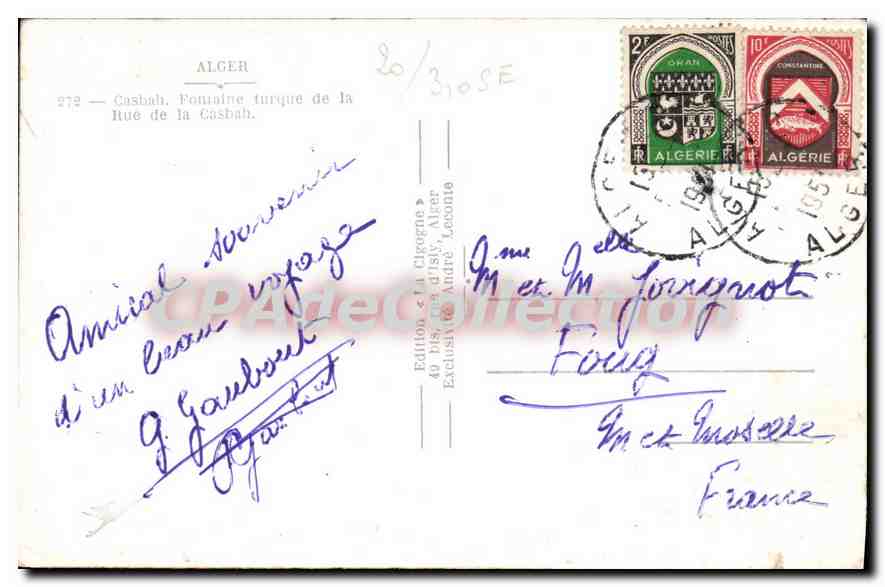 ALGER
272 — Casbah. Fontaine turque de la
Rue de la Casbah.
20/
Amical souvenir
d'un beau voyage
G. Gaubout
Edition « La Cigogne »
49 bis, rue d'Isly, Alger
Exclusivité André Leconte
2F POSTES
ORAN
RF ALGÉRIE
10F POSTES
CONSTANTINE
RF ALGÉRIE
ALGER
ALGER
Mme et Mlle Jougnot
Foug
M et Moselle
France
CPAdeCollection